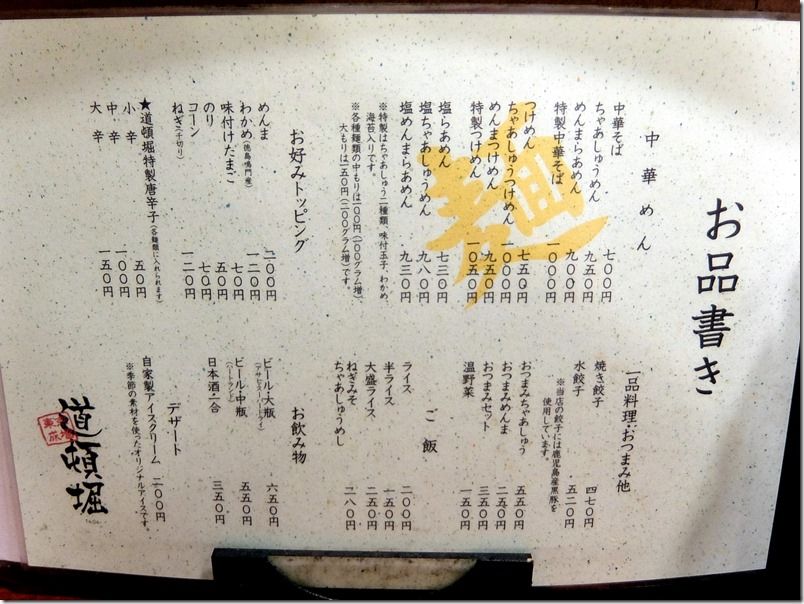 お品書き
中華めん
中華そば 七〇〇円
ちゃあしゅうめん 九五〇円
めんまらあめん 九〇〇円
特製中華そば 一〇〇〇円
つけめん 七五〇円
ちゃあしゅうつけめん 一〇〇〇円
めんまつけめん 九五〇円
特製つけめん 一〇五〇円
塩らあめん 七三〇円
塩ちゃあしゅうめん 九八〇円
塩めんまらあめん 九三〇円
※特製はちゃあしゅう二種類、味付玉子、わかめ、
海苔入りです。
※各種麺類の中もりは一〇〇円(一〇〇グラム増)、
大もりは一五〇円(二〇〇グラム増)です。
お好みトッピング
めんま 二〇〇円
わかめ(徳島鳴門産) 一二〇円
味付けたまご 七〇円
のり 五〇円
コーン 七〇円
ねぎ(千切り) 一二〇円
★道頓堀特製唐辛子(各麺類に入れられます)
小辛 五〇円
中辛 一〇〇円
大辛 一五〇円
一品料理・おつまみ他
焼き餃子 四七〇円
水餃子 五二〇円
※当店の餃子には鹿児島産黒豚を
使用しています。
おつまみちゃあしゅう 五五〇円
おつまみめんま 二五〇円
おつまみセット 三五〇円
温野菜 一五〇円
ご飯
ライス 二〇〇円
半ライス 一五〇円
大盛ライス 二五〇円
ねぎみそ
ちゃあしゅうめし 二八〇円
お飲み物
ビール・大瓶 六五〇円
(アサヒスーパードライ)
ビール・中瓶 五五〇円
(ハートランド)
日本酒一合 三五〇円
デザート
自家製アイスクリーム 二〇〇円
※季節の素材を使ったオリジナルアイスです。
道頓堀